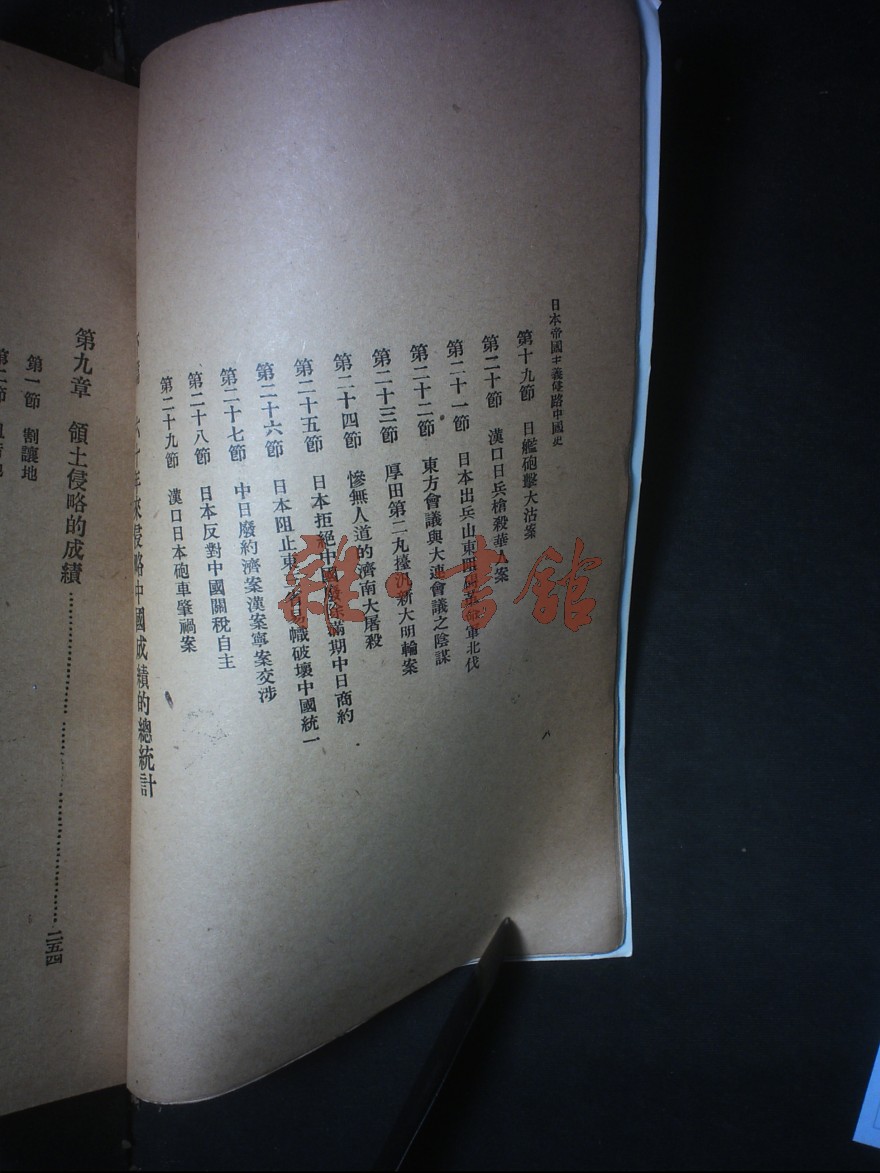 日本帝國主義侵略中國史
第十九節 日艦砲擊大沽案
第二十節 漢口日兵槍殺華人案
第二十一節 日本出兵山東阻撓革命軍北伐
第二十二節 東方會議與大連會議之陰謀
第二十三節 厚田第二丸擡沉新大明輪案
第二十四節 慘無人道的濟南大屠殺
第二十五節 日本拒絕中國廢除滿期中日商約
第二十六節 日本阻止東三省易幟破壞中國統一
第二十七節 中日廢約濟案漢案寧案交涉
第二十八節 日本反對中國關稅自主
第二十九節 漢口日本砲車肇禍案
十年來侵略中國成績的總統計
第九章 領土侵略的成績 二五四
第一節 割讓地
第二節
雜·書館